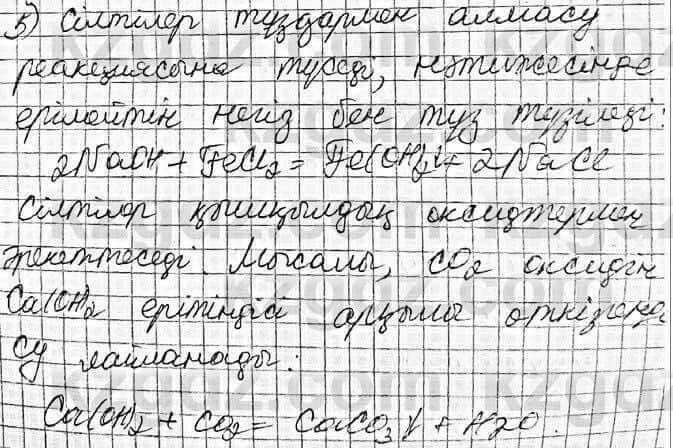 5) Сілтілер тұздармен алмасу
реакциясына түседі, нәтижесінде
ерімейтін негіз бен тұз түзіледі:
2NaOH + FeCl₂ = Fe(OH)₂↓ + 2NaCl
Сілтілер қышқылдық оксидтермен
әрекеттеседі. Мысалы, CO₂ оксидін
Ca(OH)₂ ерітіндісі арқылы өткізгенде
су лайланады:
Ca(OH)₂ + CO₂ = CaCO₃↓ + H2O.